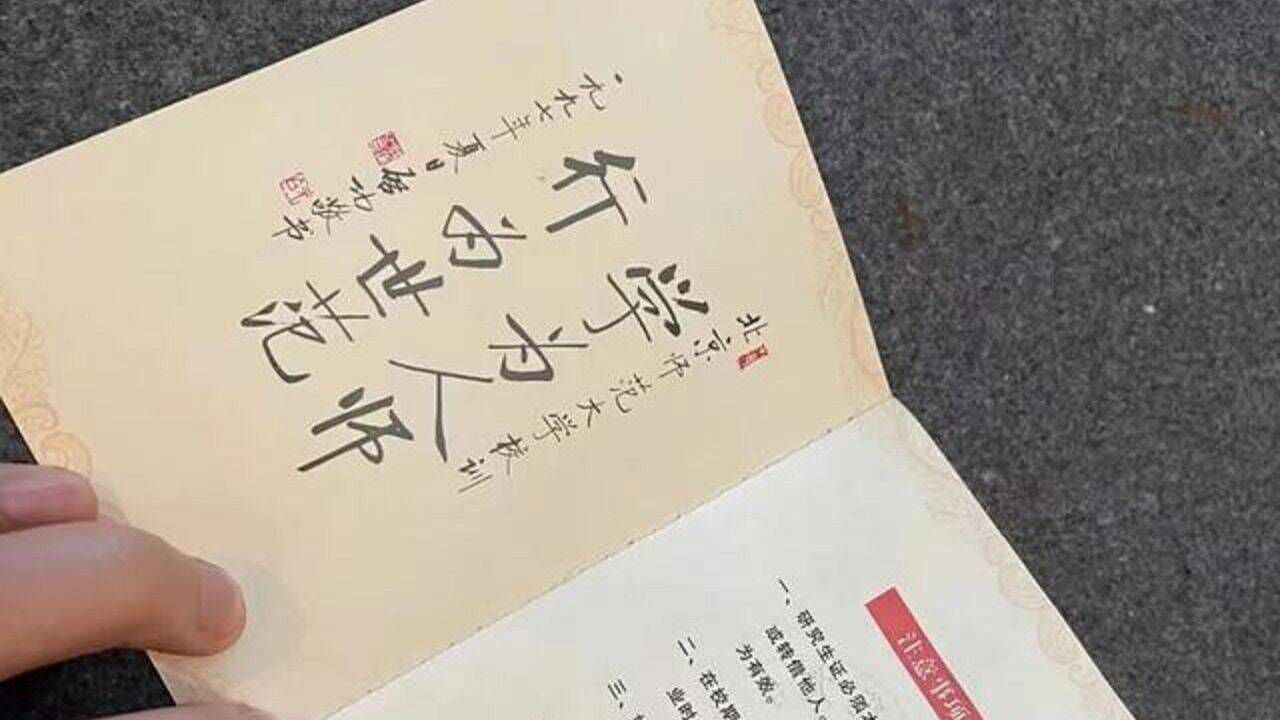 北京师范大学校训
学为人师
行为世范
一九九七年夏日启功敬书
注意事项
一、研究生证必须
或转借他人。
为有效。
二、在校期
业时
三、